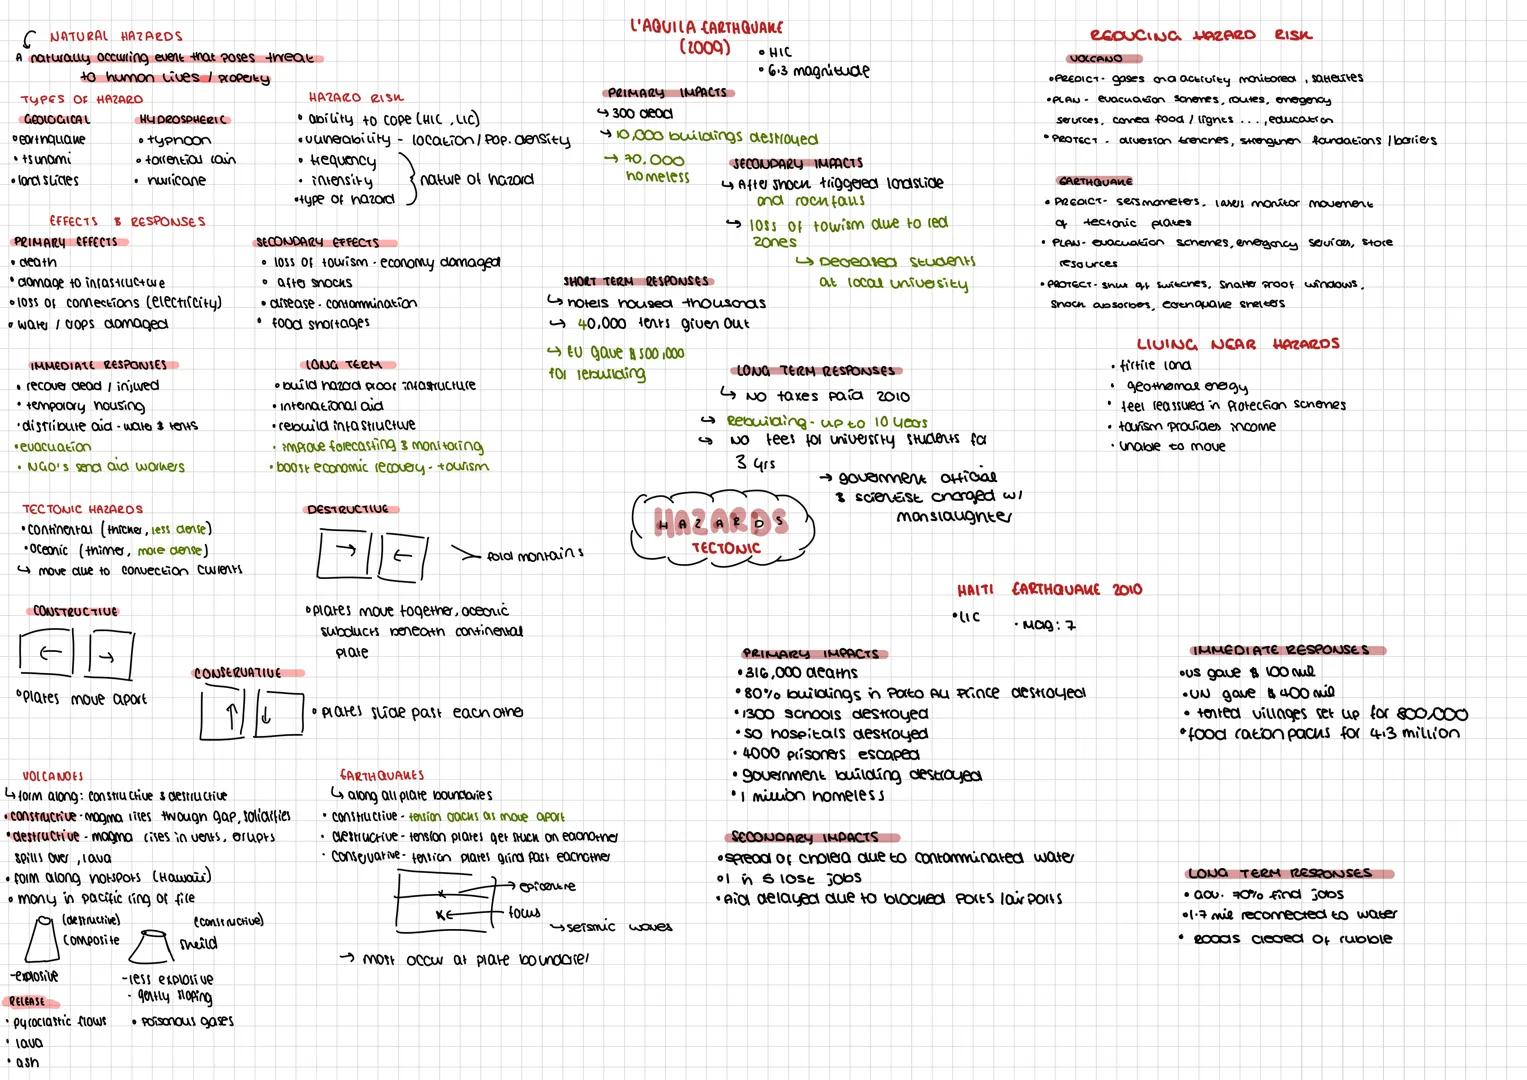 NATURAL HAZARDS
A naturally occuring event that poses threat
to human lives / property
TYPES OF HAZARD
GEOLOGICAL
• earthquake
• tsunami
• landslides
HYDROSPHERIC
• typhoon
• torrential rain
• hurricane
HAZARD RISK
• ability to cope (HIC, LIC)
• vulnerability - location / pop. density
• frequency
• intensity
• type of hazard
nature of hazard
EFFECTS & RESPONSES
PRIMARY EFFECTS
• death
• damage to infastructure
• loss of connections (electricity)
• water / crops damaged
SECONDARY EFFECTS
• loss of tourism - economy damaged
• after shocks
• disease - contammination
• food shortages
IMMEDIATE RESPONSES
• recover dead / injured
• temporary housing
• distribute aid - water & tents
• evacuation
• NGO's send aid workers
LONG TERM
• build hazard proof infastructure
• international aid
• rebuild infastructure
• improve forecasting & monitoring
• boost economic recovery - tourism
TECTONIC HAZARDS
• continental (thicker, less dense)
• oceanic (thinner, more dense)
↳ move due to convection currents
DESTRUCTIVE
fold montains
• plates move together, oceanic
subducts beneath continental
plate
CONSTRUCTIVE
• plates move apart
CONSERVATIVE
• plates slide past each other
VOLCANOES
↳ form along: constructive & destructive
• constructive - magma rises through gap, solidifies
• destructive - magma rises in vents, erupts
spills over, lava
• form along hotspots (Hawaii)
• many in pacific ring of fire
(destructive)
composite
(constructive)
sheild
-explosive
-less explosive
- gently sloping
RELEASE
• pyroclastic flows
• lava
• ash
• poisonous gases
EARTHQUAKES
↳ along all plate boundaries
• constructive - tension cracks as move apart
• destructive - tension plates get stuck on eachother
• conservative - tension plates grind past eachother
→ epicentre
focus
↳ seismic waves
→ most occur at plate boundarie/
L'AQUILA EARTHQUAKE
(2009)
• HIC
• 6.3 magnitude
PRIMARY IMPACTS
↳ 300 dead
→ 10,000 buildings destroyed
→ 70,000
homeless
SECONDARY IMPACTS
↳ After shock triggered landslide
and rockfalls
↳ loss of tourism due to red
zones
↳ Decreased students
at local university
SHORT TERM RESPONSES
↳ hotels housed thousands
↳ 40,000 tents given out
↳ EU gave $500,000
for rebuilding
LONG TERM RESPONSES
↳ No taxes paid 2010
↳ Rebuilding - up to 10 years
↳ No fees for university students for
3 yrs
→ government official
& scientist charged w/
manslaughter
HAZARDS
TECTONIC
REDUCING HAZARD RISK
VOLCANO
• PREDICT - gases and activity monitored, satellites
• PLAN - evacuation schemes, routes, emergency
services, canned food / lights ..., education
• PROTECT - diversion trenches, strengthen foundations / barriers
EARTHQUAKE
• PREDICT - seismometers, lasers monitor movement
of tectonic plates
• PLAN - evacuation schemes, emergency services, store
resources
• PROTECT - shut off switches, shatter proof windows,
shock absorbers, earthquake shelters
LIVING NEAR HAZARDS
• firtile land
• geothermal energy
• feel reassured in protection schemes
• tourism provides income
• unable to move
HAITI EARTHQUAKE 2010
• LIC
• mag: 7
PRIMARY IMPACTS
• 316,000 deaths
• 80% buildings in Porto Au Prince destroyed
• 1300 schools destroyed
• 50 hospitals destroyed
• 4000 prisoners escaped
• government building destroyed
• 1 million homeless
SECONDARY IMPACTS
• spread of cholera due to contamminated water
• 1 in 5 lost jobs
• Aid delayed due to blocked ports / airports
IMMEDIATE RESPONSES
• US gave $100 mil
• UN gave $400 mil
• tented villages set up for 800,000
• food ration packs for 4.3 million
LONG TERM RESPONSES
• gov. 70% find jobs
• 1.7 mil reconnected to water
• Roads cleared of rubble